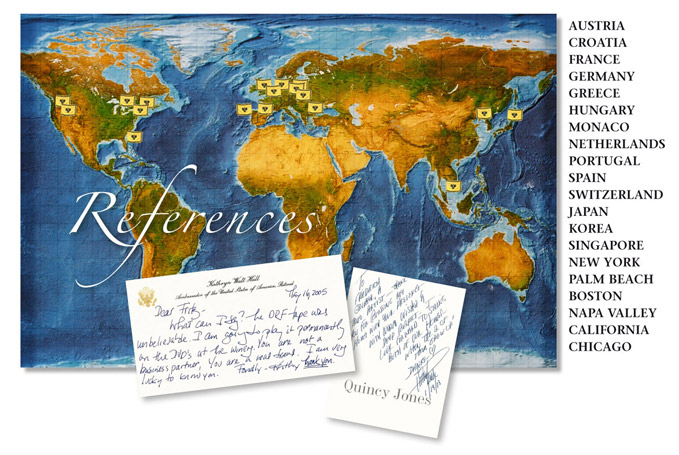 References
AUSTRIA
CROATIA
FRANCE
GERMANY
GREECE
HUNGARY
MONACO
NETHERLANDS
PORTUGAL
SPAIN
SWITZERLAND
JAPAN
KOREA
SINGAPORE
NEW YORK
PALM BEACH
BOSTON
NAPA VALLEY
CALIFORNIA
CHICAGO
Kathryn Walt Hall
Ambassador of the United States of America, Retired
May 16, 2005
Dear Fritz -
What can I say? The ORF tape was
unbelievable. I am going to play it permanently
on the DVDs at the winery. You are not a
business partner, you are a dear friend. I am very
lucky to know you. Fondly - Kathy Thank you.
TO
Quincy Jones